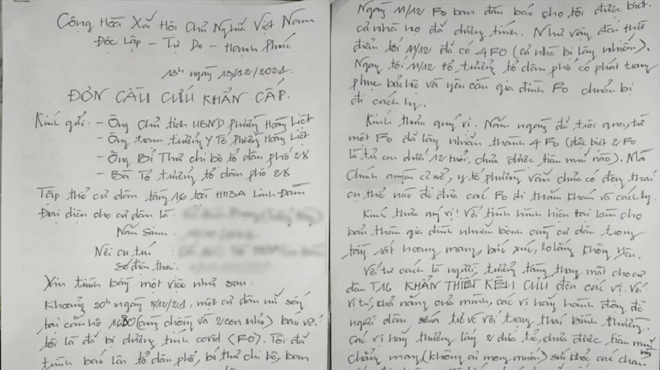 Cộng Hòa Xã Hội Chủ Nghĩa Việt Nam
Độc Lập - Tự Do - Hạnh Phúc
13h ngày 13/12/2021.
ĐƠN CẦU CỨU KHẨN CẤP.
Kính gửi: - Ông Chủ tịch UBND phường Hoàng Liệt
- Ông trạm trưởng Y Tế phường Hoàng Liệt
- Ông Bí Thư chi bộ tổ dân phố 28
- Bà Tổ trưởng tổ dân phố 28
Tập thể cư dân tầng 16 tòa HH3A Linh Đàm
Đại diện cho cư dân là:
Năm sinh:
Nơi cư trú:
Số điện thoại:
Xin trình bày một việc như sau:
Khoảng 20h ngày 8/12/21, một cư dân nữ sống
tại căn hộ (cùng chồng và 2 con nhỏ) báo với
tôi là đã bị dương tính covid (F0). Tôi đã
trình báo lên tổ dân phố, bí thư chi bộ, ban
Ngày 11/12 F0 ban đầu báo cho tôi được biết
cả nhà họ đã dương tính. Như vậy đến thời
điểm tối 11/12 đã có 4 F0 (cả nhà bị lây nhiễm).
Ngay tối 11/12 tổ trưởng tổ dân phố có phát trang
phục bảo hộ và yêu cầu gia đình F0 chuẩn bị
đi cách ly.
Kính thưa quý vị. Năm ngày đã trôi qua, từ
một F0 đã lây nhiễm thành 4 F0 (đặc biệt 2 F0
là trẻ em dưới 12 tuổi, chưa được tiêm mũi nào). Mà
Chính quyền cơ sở, y tế phường vẫn chưa có động thái
cụ thể nào để đưa các F0 đi thăm khám và cách ly.
Kính thưa quý vị! Với tình hình hiện tại làm cho
bản thân gia đình nhiễm bệnh cùng cư dân trong
tầng rất hoang mang, bức xúc, lo lắng không yên.
Với tư cách là người trưởng tầng thay mặt cho cư
dân T16 KHẨN THIẾT KÊU CỨU đến các vị. Với
vị trí, khả năng của mình, các vị hãy hành động để
người dân sớm trở về với trạng thái bình thường.
Các vị hãy thương lấy 2 đứa trẻ, chưa được tiêm mũi
chẳng may (không ai mong muốn) sức khỏe các cháu